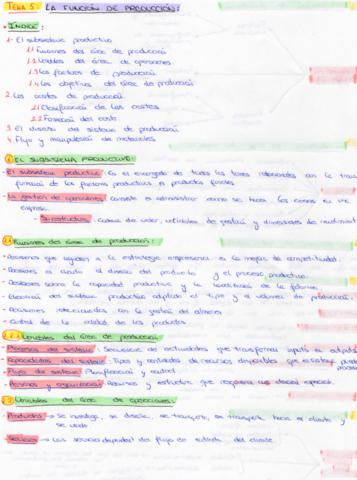 TEMA 5: LA FUNCIÓN DE PRODUCCIÓN:
• ÍNDICE:
1. El subsistema productivo
1.1 Funciones del área de producción
1.2 Variables del área de operaciones
1.3 Los factores de producción
1.4 Los objetivos del área de producción
2. Los costes de producción
2.1 Clasificación de los costes
2.2 Formación del coste
3. El diseño del sistema de producción
4. Flujo y manipulación de materiales
1. EL SUBSISTEMA PRODUCTIVO:
- El subsistema productivo: Es el encargado de todas las tareas relacionadas con la trans
formación de los factores productivos a productos finales
- La gestión de operaciones: Consiste en administrar como se hacen las cosas en una
empresa.
- Su estructura: Cadena de valor, unidades de gestión y diversidades de rendimiento
1.1 Funciones del área de producción:
• Decisiones que ayudan a la estrategia empresarial a la mejora de competitividad.
• Decisiones en cuanto al diseño del producto y el proceso productivo.
• Decisiones sobre la capacidad productiva y la localización de la fábrica
• Elección del sistema productivo adaptado al tipo y al volumen de producción.
• Decisiones relacionadas con la gestión del almacén
• Control de la calidad de los productos
1.2 Variables del área de producción:
- Procesos del sistema: Secuencia de actividades que transforman inputs en outputs
- Capacidades del sistema: Tipos y cantidades de recursos disponibles que
- Flujo del sistema: Planificación y control
- Personas y organización: Recursos y estructura que
Variables del área de operaciones:
Productos → Se investiga, se diseña, se transporta, se transporta hacia el cliente y
se vende
Servicios → Los servicios dependen del flujo de entrada del cliente.